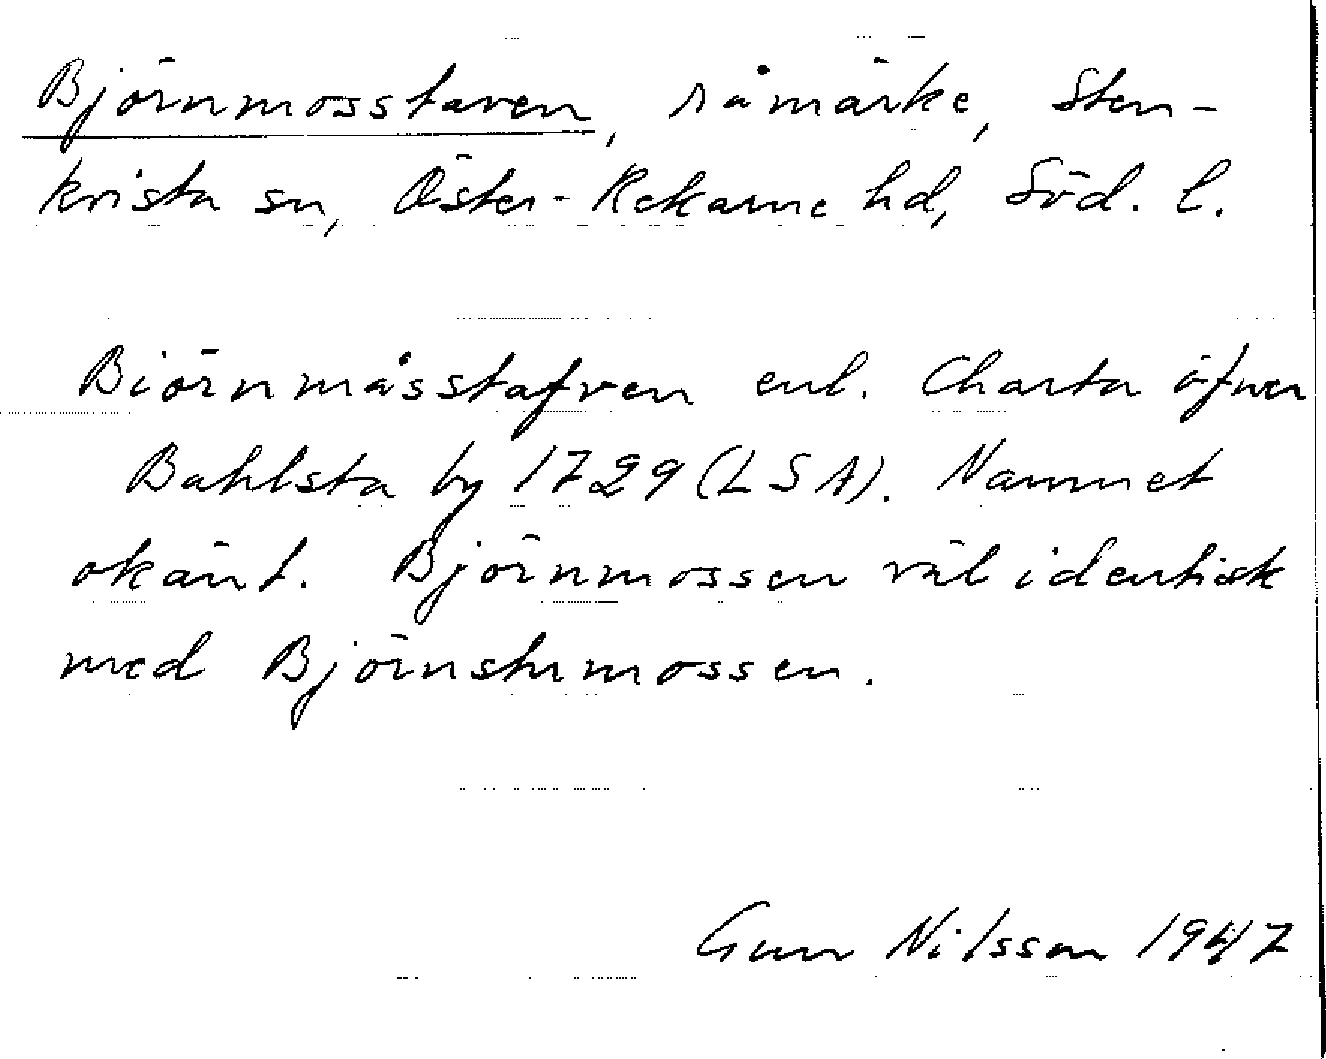 Björnmosstaven, råmärke, Sten-
kvista sn, Öster-Rekarne hd, Söd. l.
Biörnmåsstafven enl. Charta öfwer
Bahlsta by 1729 (LSA). Namnet
okänt. Björnmossen väl identisk
med Björnstumossen.
Gun Nilsson 1947